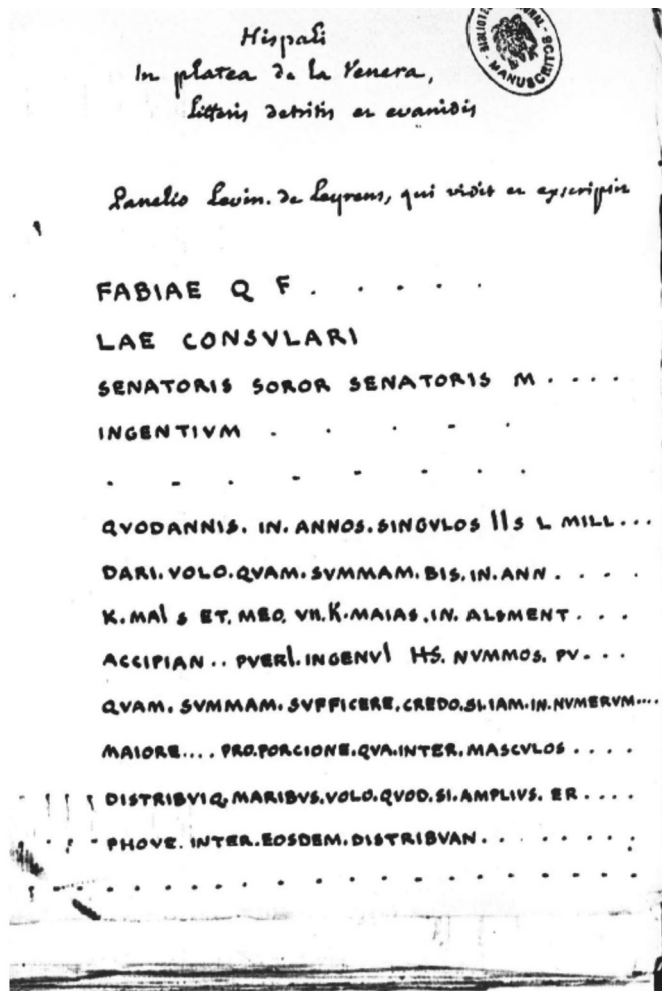 Hispali
In platea de la Venera,
Litteris detritis et evanidis
BIBLIOTECA NACIONAL - MANUSCRITOS
Lanelio Levin. de Leyrens, qui vidit et exscripsit
FABIAE Q F . . . . .
LAE CONSVLARI
SENATORIS SOROR SENATORIS M . . . .
INGENTIVM . . . - .
. - . - . - . .
QVODANNIS. IN. ANNOS. SINGVLOS IIS L MILL...
DARI. VOLO. QVAM. SVMMAM. BIS. IN. ANN . . . .
K. MAI S ET. MEO. VII. K. MAIAS. IN. ALSMENT . . .
ACCIPIAN .. PVERI. INGENVI HS. NVMMOS. PV. . .
QVAM. SVMMAM. SVFFICERE. CREDO. SI. IAM. IN. NVMERVM....
MAIORE.... PRO. PORCIONE. QVA. INTER. MASCVLOS . . . .
DISTRIBVIQ. MARIBVS. VOLO. QVOD. SI. AMPLIVS. ER . . . .
PHOVE. INTER. EOSDEM. DISTRIBVAN . . . . . . . .